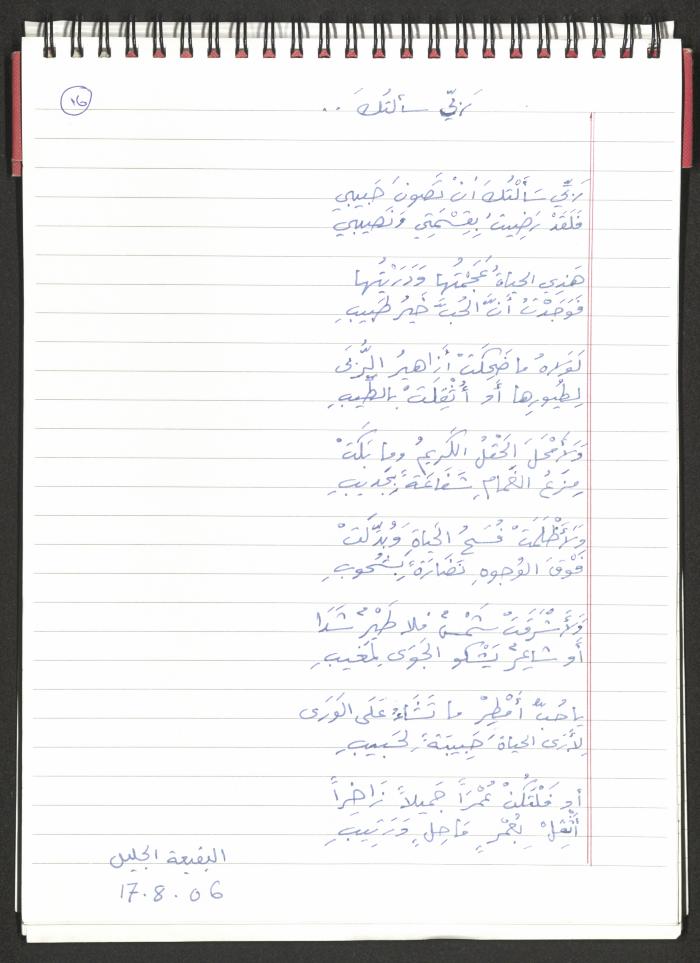 ١٦
رَبّي سألتُكَ ..
رَبِّي سَأَلْتُكَ أنْ تَصونَ حَبيبي
فَلَقَدْ رَضِيتُ بِقِسْمَتِي وَنَصيبي
هَذِي الحياةُ عَجَمْتُها وَدَرَيْتُها
فَوَجَدْتُ أنَّ الحُبَّ خَيرُ طَبيبِ
لَولاهُ ما ضَحِكَتْ أزاهيرُ الرُّبَى
لِطُيورِها أو أُثْقِلَتْ بالطِّيبِ
وَلأمْحَلَ الحَقْلُ الكَريمُ وما بَكَتْ
مِزَعُ الغَمامِ شَفَاعَةً بِجَديبِ
وَلأظْلَمَتْ فُسَحُ الحَياةِ وَبُدِّلَتْ
فَوْقَ الوُجوهِ نَضَارَةٌ بِشُحُوبِ
وَلأشْرَقَتْ شَمْسٌ فلا طَيْرٌ شَدَا
أو شاعِرٌ يَشْكو الجَوَى لِمَغيبِ
يا حُبُّ أمْطِرْ ما تَشَاءُ عَلَى الوَرَى
لِأرَى الحياةَ حَبِيبَةً لِحَبيبِ
أو فَلْتَكُنْ عُمْرَاً جَميلاً زَاخِراً
أَثْقِلْ بِعُمْرٍ مَاحِلٍ وَرَتِيبِ
البقيعة الجليل
17.8.06